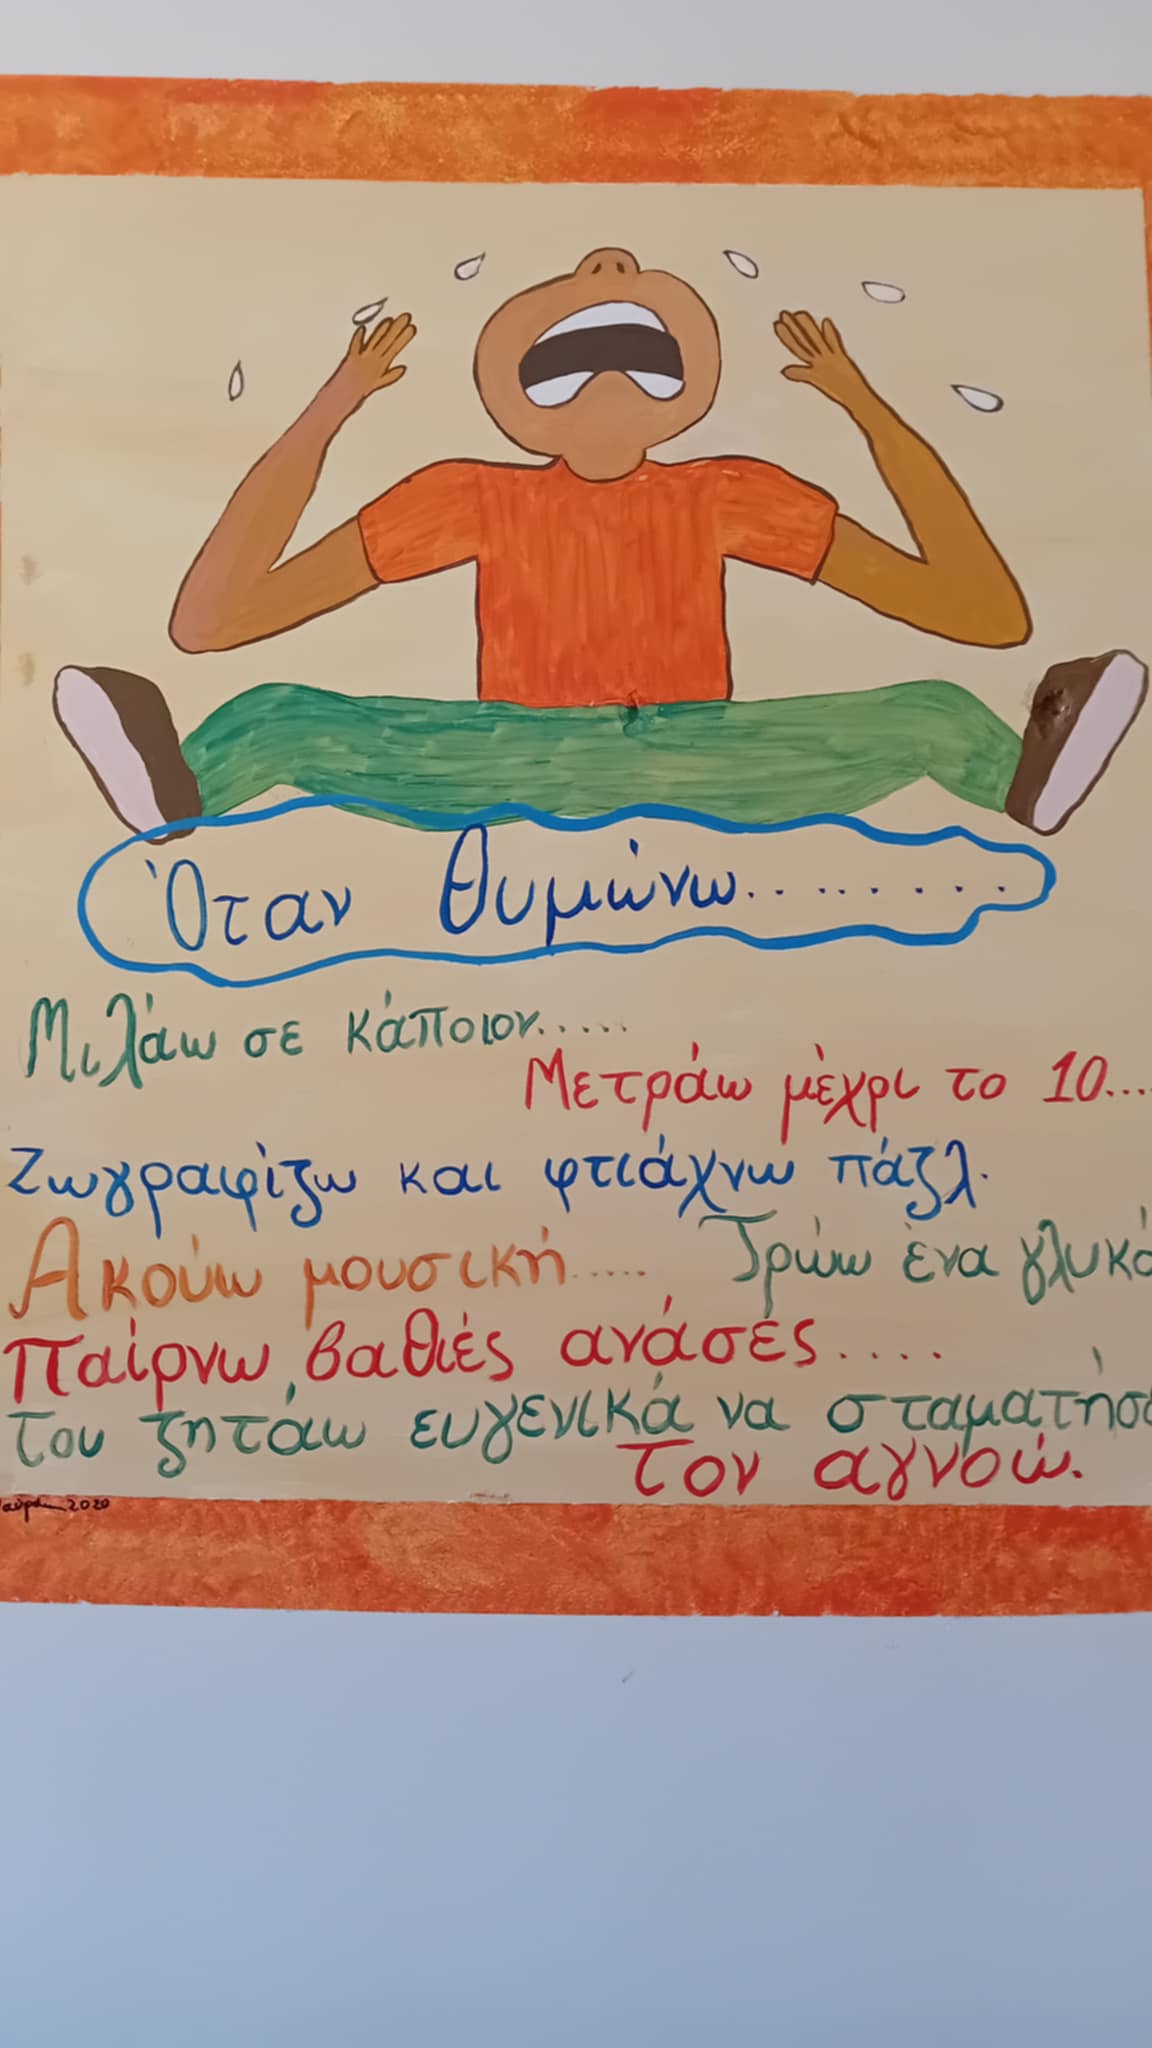 Όταν θυμώνω.........
Μιλάω σε κάποιον.....
Μετράω μέχρι το 10....
Ζωγραφίζω και φτιάχνω πάζλ.
Ακούω μουσική..... Τρώω ένα
Παίρνω βαθιές ανάσες....
Του ζητάω ευγενικά να
τον αγνοώ.
2020